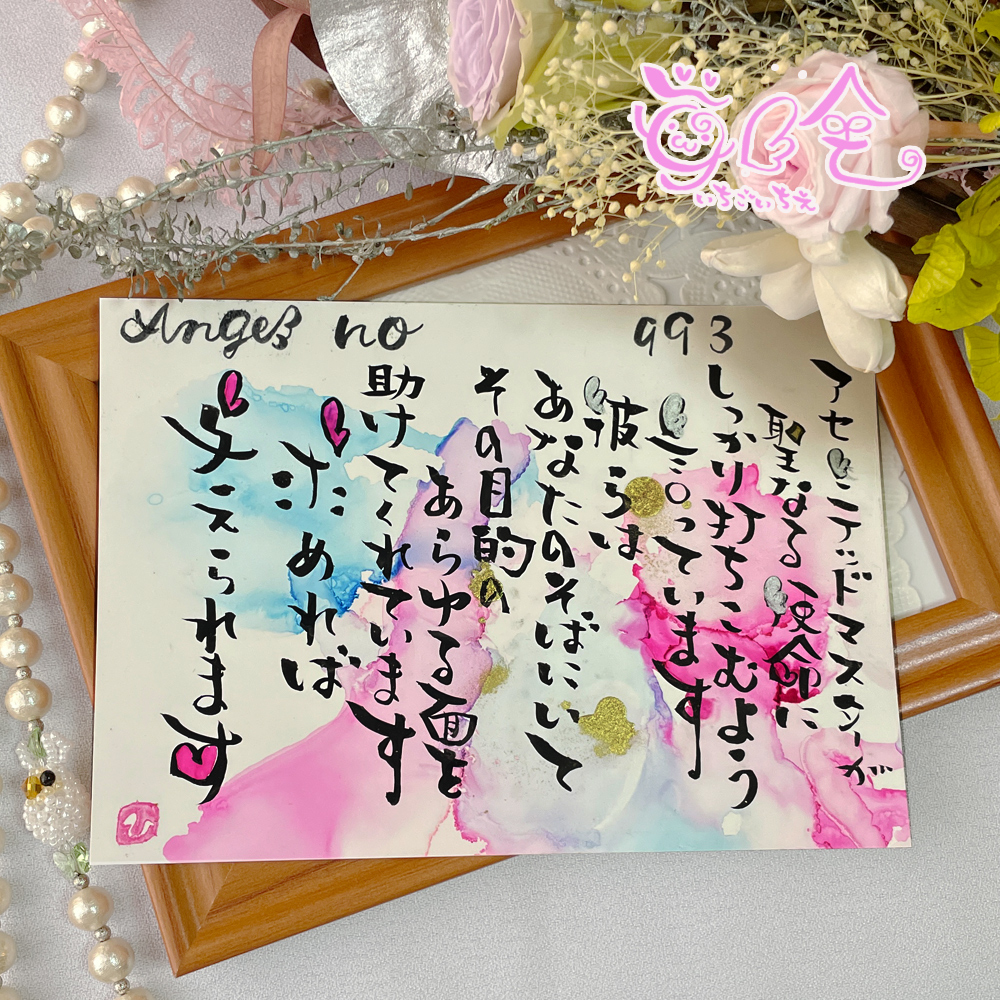 Angel no 993
アセンテッドマスターが
聖なる使命に
しっかり打ちこむよう
言っています
彼らは
あなたのそばにいて
その目的の
あらゆる面を
助けてくれています
求めれば
与えられます
いちごいちえ